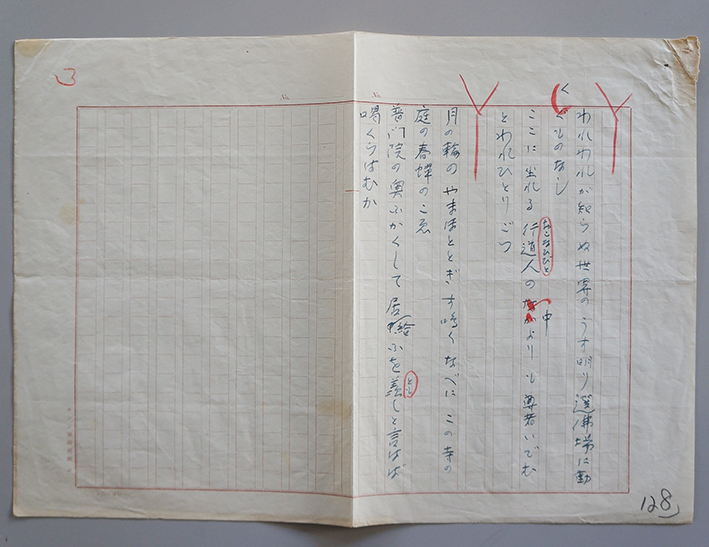 われわれが知らぬ世界のうす明り選佛場に勤
くものなし
く
ここに坐れる行道人の中よりも尊者いでむ
とわれひとりごつ
月の輪のやまほととぎす鳴くなべにこの寺の
庭の春蝉のこゑ
普門院の奥ふかくして居給ふを羨しと言はば
喝くらはむか
とも
128